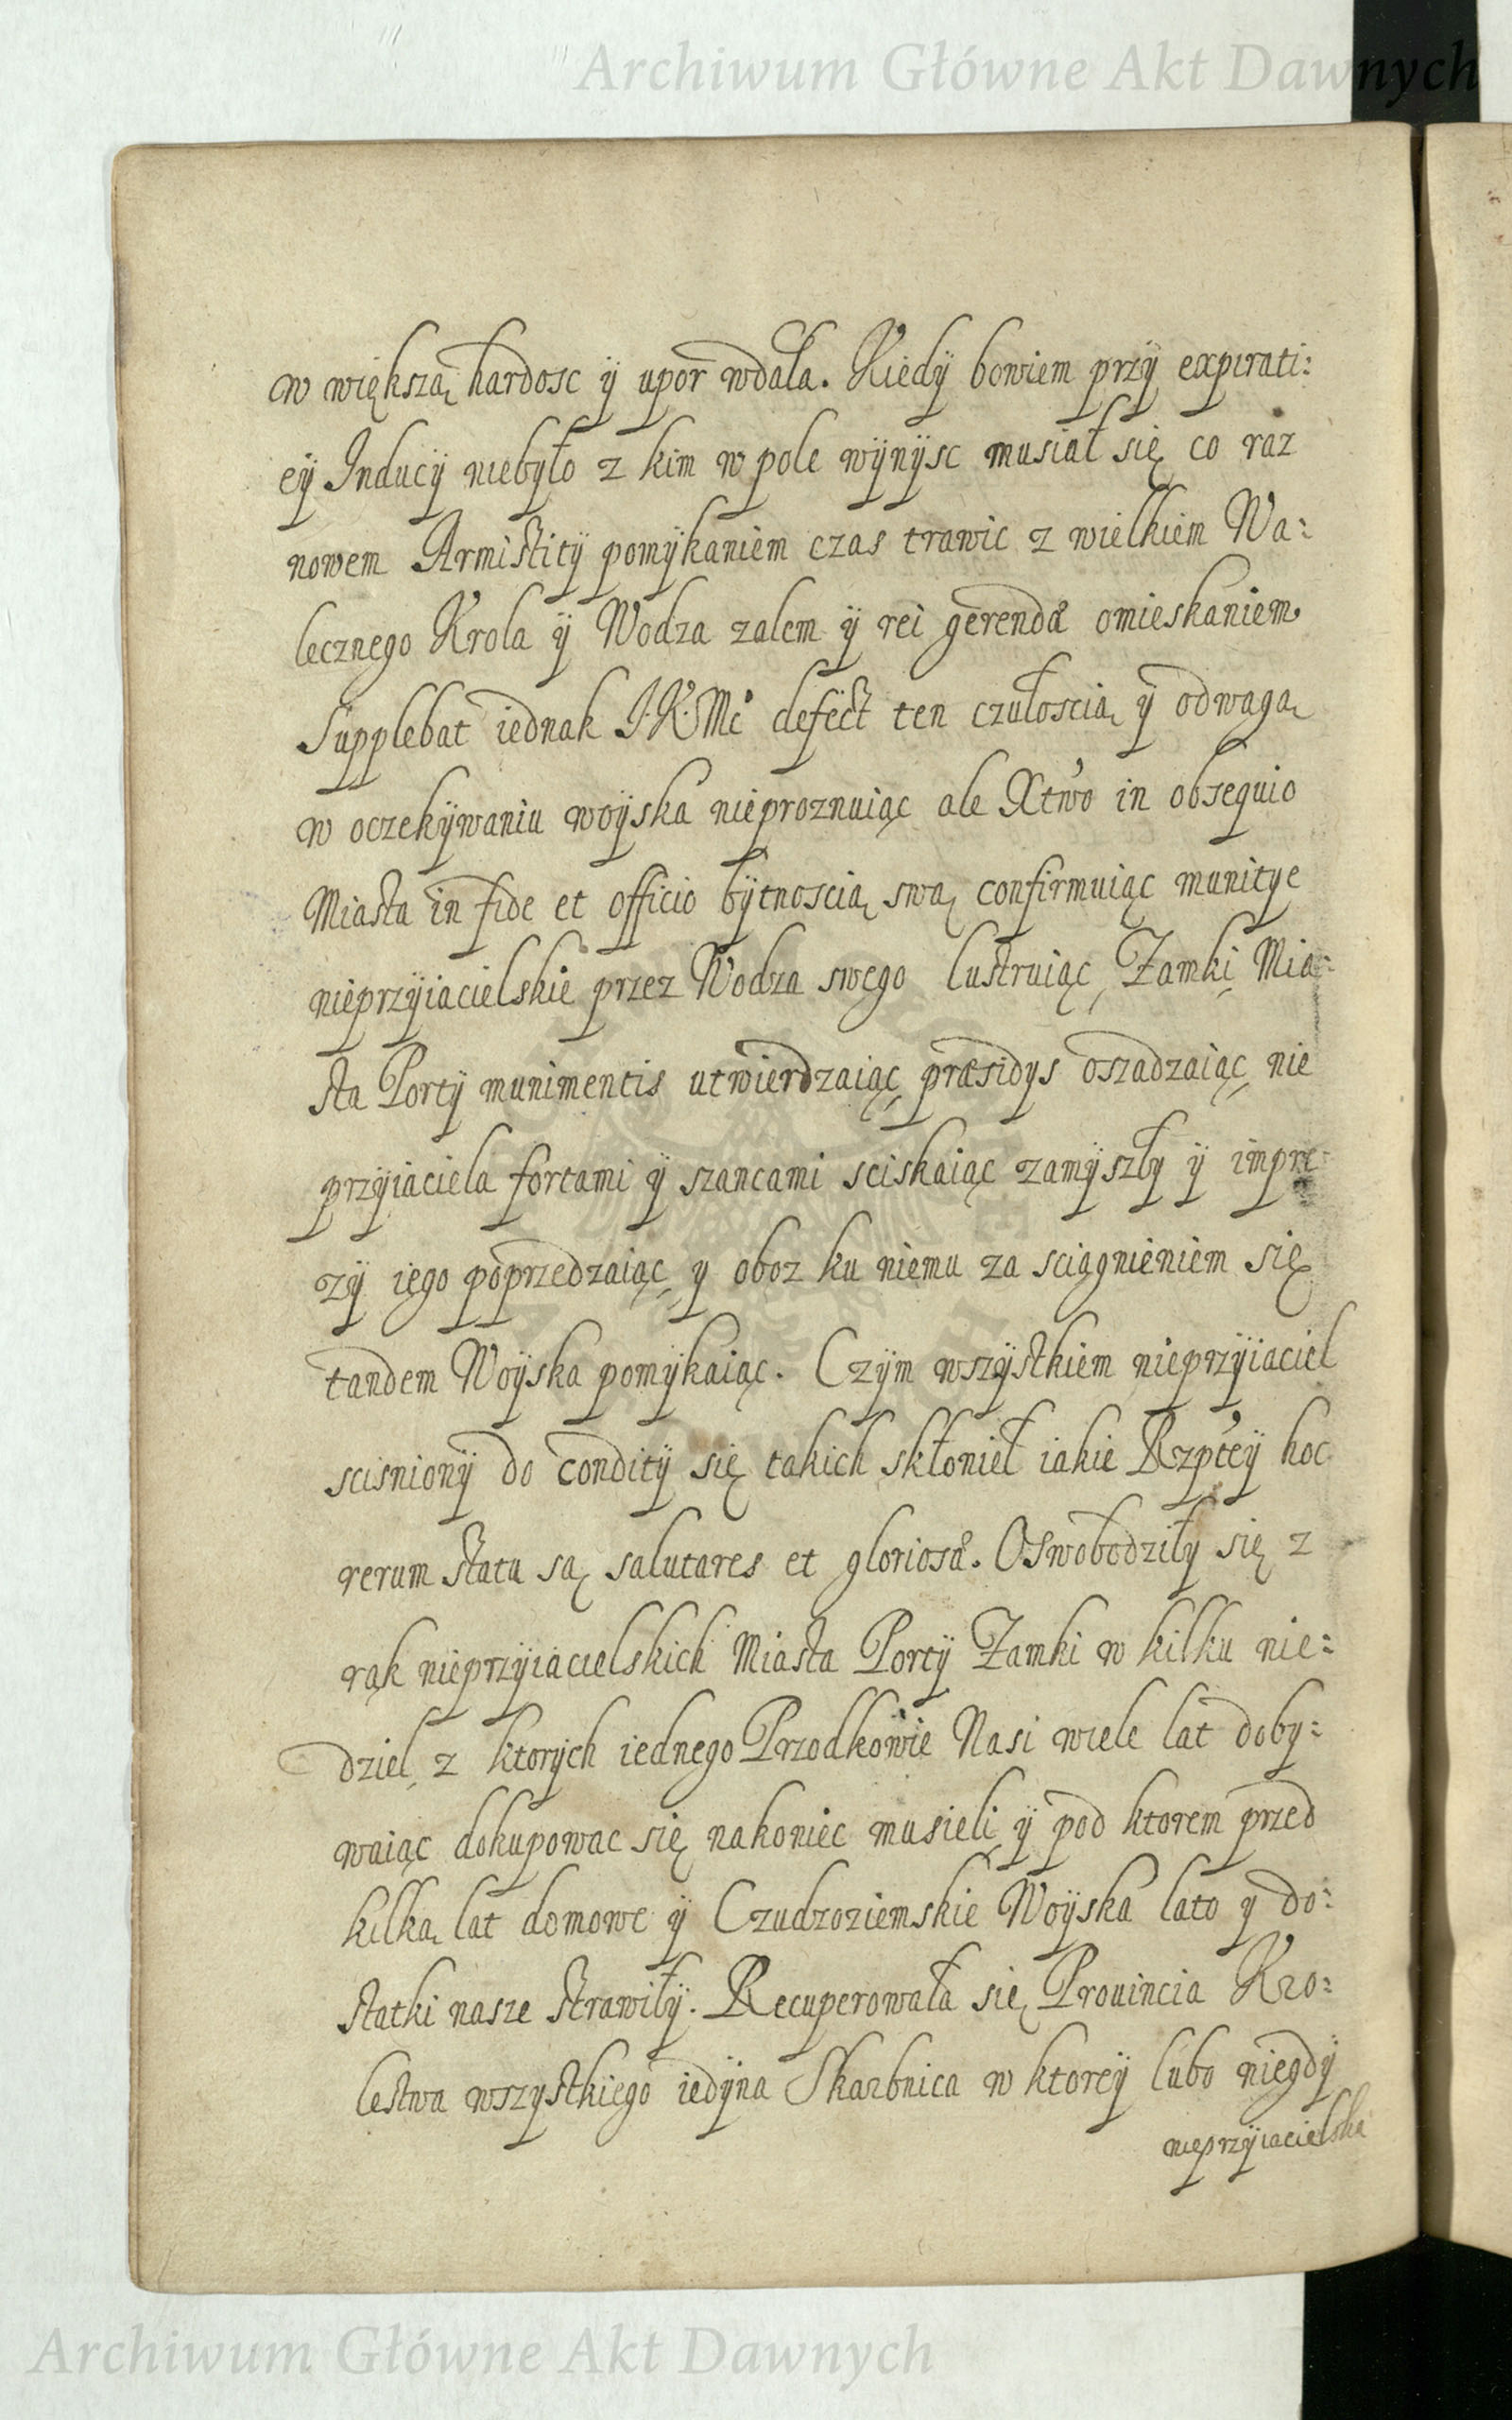 Archiwum Główne Akt Dawnych
w większą hardosc ÿ upor wdała. Kiedÿ bowiem przÿ expirati:
eÿ Inducÿ niebÿło z kim w pole wÿnÿsc musiał się co raz
nowem Armistitÿ pomÿkaniem czas trawic z wielkiem Wa:
lecznego Krola ÿ Wodza zalem ÿ rei gerendæ omieskaniem
Supplebat iednak J.K.Mc defect ten czułoscią ÿ odwagą
w oczekÿwaniu woÿska nieproznuiąc ale Xtwo in obsequio
Miasta in fide et officio bÿtnoscią swą confirmuiąc munitye
nieprzÿiacielskie przez Wodza swego lustruiąc, Zamki, Mia:
sta Portÿ munimentis utwierdzaiąc, præsidys oszadzaiąc, nie
przÿiaciela fortami ÿ szancami sciskaiąc zamÿszłÿ ÿ impre
zÿ iego poprzedzaiąc, y oboz ku niemu za sciągnieniem się
tandem Woÿska pomÿkaiąc. Czÿm wszÿstkiem nieprzÿiaciel
scisnionÿ do conditÿ się takich skłonieł iakie Rzpteÿ hoc
rerum statu są salutares et gloriosæ. Oswobodziłÿ się z
rąk nieprzÿiacielskich Miasta Portÿ Zamki w kilku nie:
dziel, z ktorÿch iednego Przodkowie Nasi wiele lat doby:
waiąc dokupowac się nakoniec musieli, ÿ pod ktorem przed
kilką lat domowe ÿ Czudzoziemskie Woÿska lato y do:
statki nasze strawiłÿ. Recuperowała się Prouincia Kro:
lestwa wszystkiego iedÿna Skarbnica w ktoreÿ lubo niegdÿ
nieprzÿiacielska
Archiwum Główne Akt Dawnych